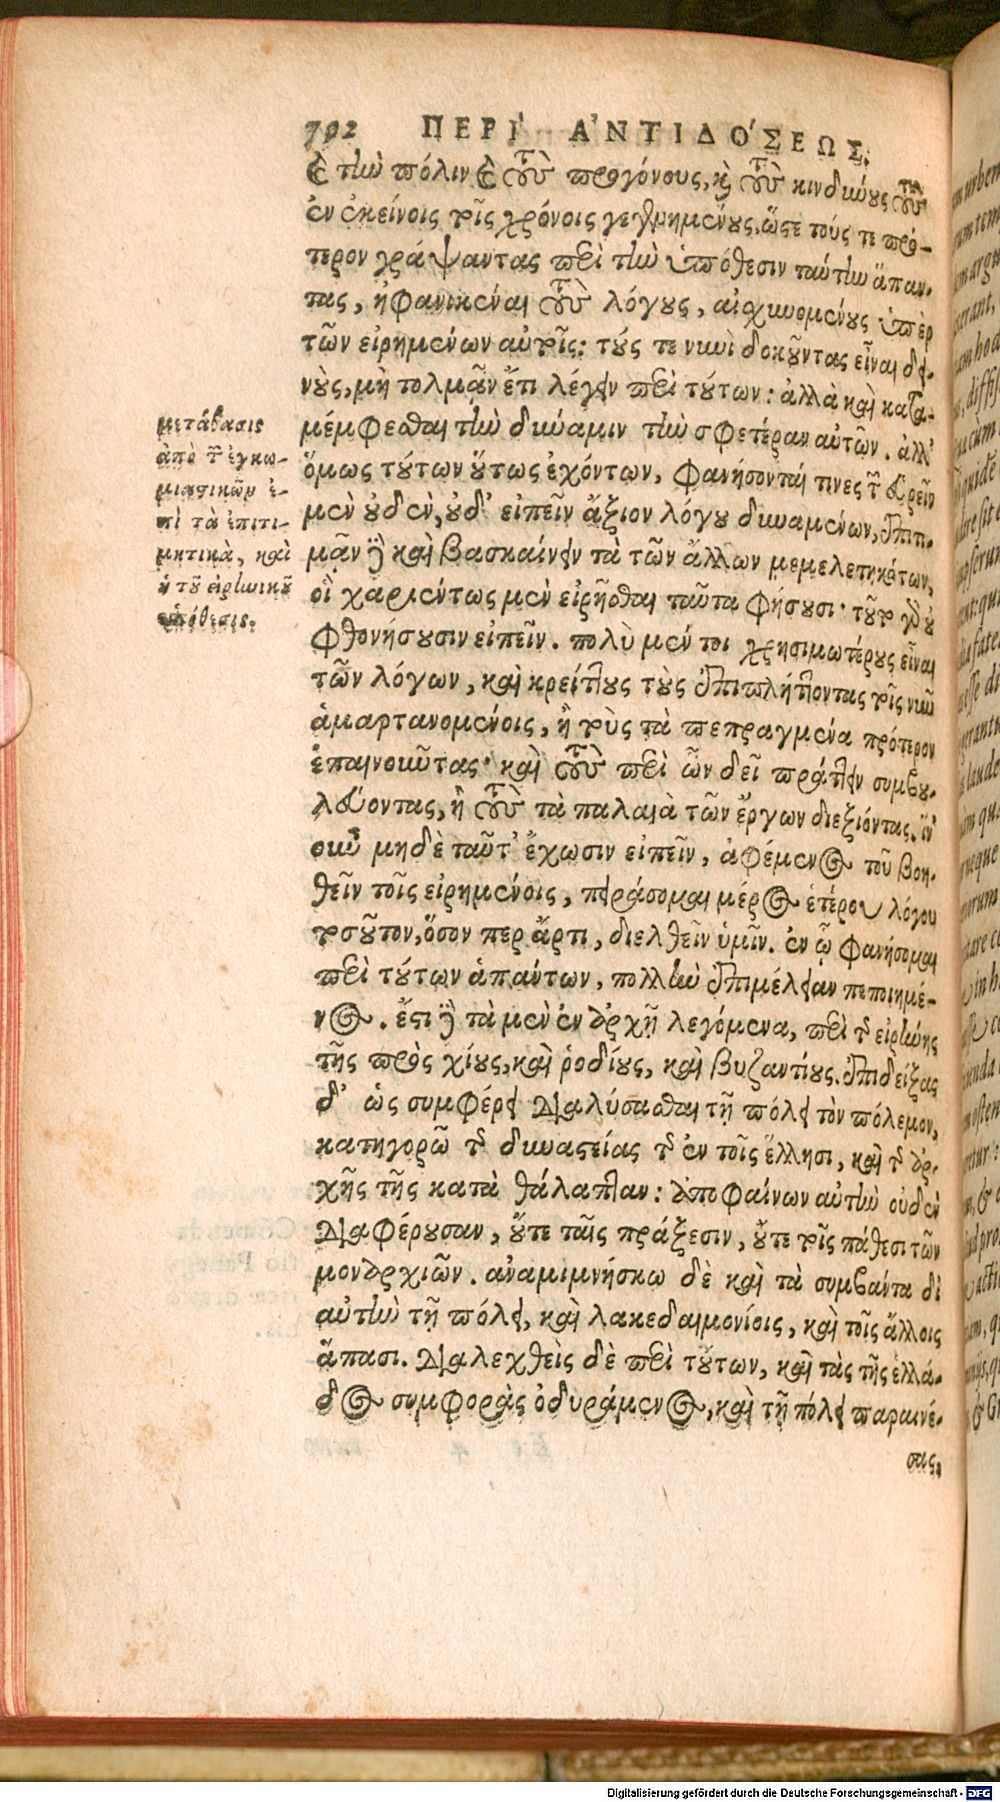 792 ΠΕΡΙ' ΑʼΝΤΙΔΟΣΕΩΣ.
καὶ τὴν πόλιν καὶ τοὺς προγόνους, καὶ τοὺς κινδύνους τοὺς
ἐν ἐκείνοις τοῖς χρόνοις γεγενημένους, ὥστε τούς τε πρό-
τερον γράψαντας περὶ τὴν ὑπόθεσιν ταύτην ἅπαν-
τας, ἠφανικέναι τοὺς λόγους, αἰσχυνομένους ὑπὲρ
τῶν εἰρημένων αὐτοῖς: τούς τε νυνὶ δοκοῦντας εἶναι δει-
νοὺς, μὴ τολμᾶν ἔτι λέγειν περὶ τούτων: ἀλλὰ καὶ κατα-
μέμφεσθαι τὴν δύναμιν τὴν σφετέραν αὐτῶν. ἀλλ'
ὅμως τούτων οὕτως ἐχόντων, φανήσονταί τινες τῶν εὑρεῖν
μὲν οὐδὲν, οὐδ' εἰπεῖν ἄξιον λόγου δυναμένων, ἐπιτι-
μᾶν δὲ καὶ βασκαίνειν τὰ τῶν ἄλλων μεμελετηκότων,
οἳ χαριέντως μὲν εἰρῆσθαι ταῦτα φήσουσι· τὸ γὰρ εὖ
φθονήσουσιν εἰπεῖν. πολὺ μέν τοι χρησιμωτέρους εἶναι
τῶν λόγων, καὶ κρείττους τοὺς ἐπιπλήττοντας τοῖς νῦν
ἁμαρτανομένοις, ἢ τοὺς τὰ πεπραγμένα πρότερον
ἐπαινοῦντας· καὶ τοὺς περὶ ὧν δεῖ πράττειν συμβου-
λεύοντας, ἢ τοὺς τὰ παλαιὰ τῶν ἔργων διεξιόντας. ἵν'
οὖν μηδὲ ταῦτ' ἔχωσιν εἰπεῖν, ἀφέμενος τοῦ βοη-
θεῖν τοῖς εἰρημένοις, πειράσομαι μέρος ἑτέρου λόγου
τοσοῦτον, ὅσον περ ἄρτι, διελθεῖν ὑμῖν. ἐν ᾧ φανήσομαι
περὶ τούτων ἁπάντων, πολλὴν ἐπιμέλειαν πεποιημέ-
νος. ἔστι δὲ τὰ μὲν ἐν ἀρχῇ λεγόμενα, περὶ τῆς εἰρήνης
τῆς πρὸς χίους, καὶ ῥοδίους, καὶ βυζαντίους. ἐπιδείξας
δ' ὡς συμφέρει διαλύσασθαι τῇ πόλει τὸν πόλεμον,
κατηγορῶ τῆς δυναστείας τῆς ἐν τοῖς ἕλλησι, καὶ τῆς ἀρ-
χῆς τῆς κατὰ θάλατταν: ἀποφαίνων αὐτὴν οὐδὲν
διαφέρουσαν, οὔτε ταῖς πράξεσιν, οὔτε τοῖς πάθεσι τῶν
μοναρχιῶν. ἀναμιμνήσκω δὲ καὶ τὰ συμβάντα δι'
αὐτὴν τῇ πόλει, καὶ λακεδαιμονίοις, καὶ τοῖς ἄλλοις
ἅπασι. διαλεχθεὶς δὲ περὶ τούτων, καὶ τὰς τῆς ἑλλά-
δος συμφορὰς ὀδυράμενος, καὶ τῇ πόλει παραινέ-
σας,
μετάβασις
ἀπὸ τῶν ἐγκω-
μιαστικῶν ἐ-
πὶ τὰ ἐπιτι-
μητικὰ, καὶ
ἡ τοῦ εἰρηνικοῦ
ὑπόθεσις.
Digitalisierung gefördert durch die Deutsche Forschungsgemeinschaft - DFG